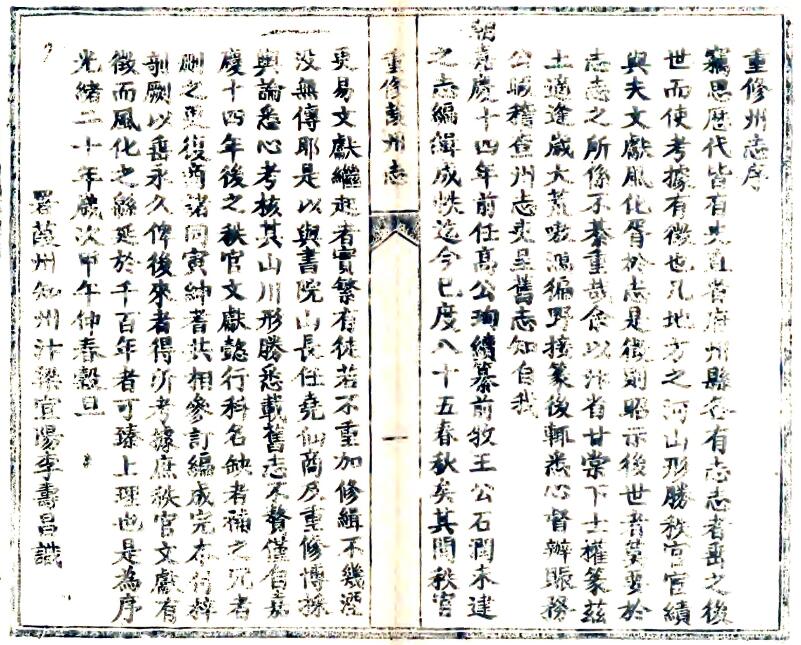 重修州志序
竊思歷代皆有史直省府州縣各有志志者垂之後
世而使考據有徵也凡地方之河山形勝秩官宦績
與夫文獻風化胥於志是徵則昭示後世者莫要於
志志之所係不綦重哉余以汴省甘棠下士權篆茲
土適逢歲大荒嗷鴻徧野接篆後輒悉心督辦賑務
公暇稽查州志吏呈舊志知自我
朝嘉慶十四年前任高公珣續纂前牧王公石潤未逮
之志編緝成帙迄今已度八十五春秋矣其間秩官
重修葭州志
一
更易文獻繼起者實繁有徒若不重加修緝不幾湮
没無傳耶是以與書院山長任堯仙商及重修博採
輿論悉心考核其山川形勝悉載舊志不贅僅自嘉
慶十四年後之秩官文獻懿行科名缺者補之冗者
刪之更復商諸同寅紳耆共相參訂編成完本付梓
剞劂以垂永久俾後來者得所考據庶秩官文獻有
徵而風化之緜延於千百年者可臻上理也是為序
光緒二十年歲次甲午仲春穀旦
署葭州知州汴梁宜陽李壽昌識